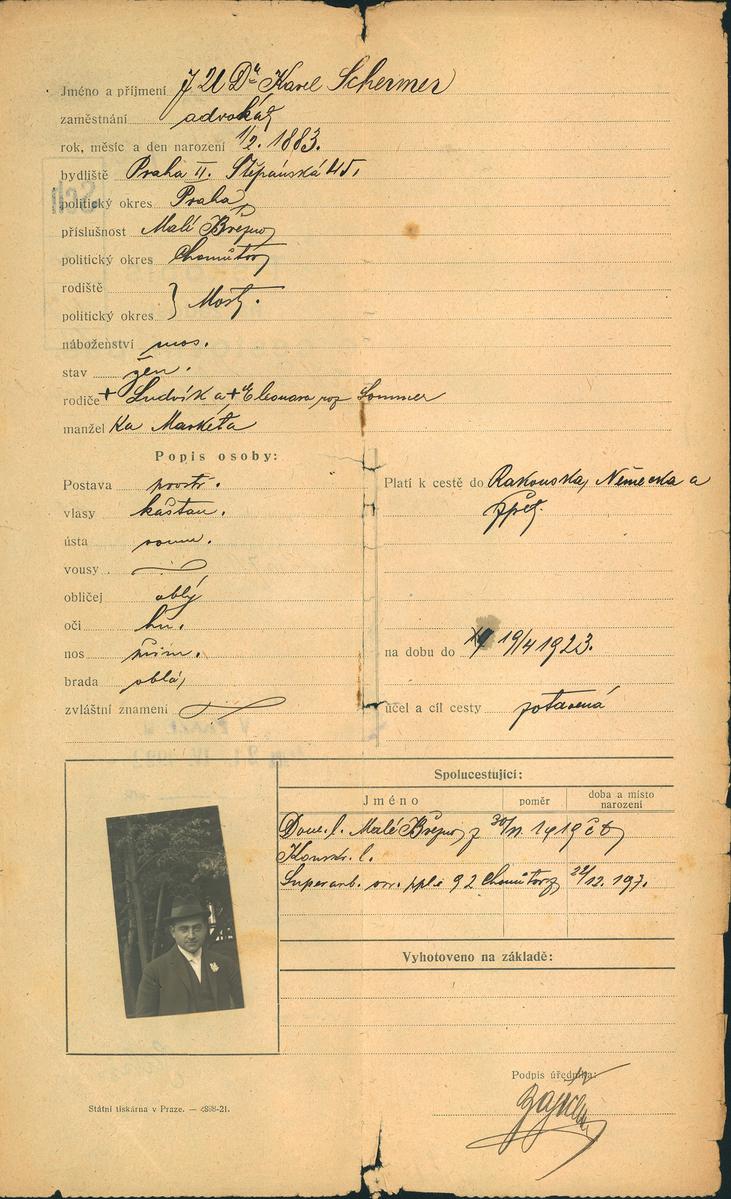 Jméno a příjmení JUDr Karel Schermer
zaměstnání advokát
rok, měsíc a den narození 1/2. 1883.
bydliště Praha II. Štěpánská 45.
politický okres Praha
příslušnost Malé Březno
politický okres Chomutov
rodiště
politický okres } Mosty.
náboženství mos.
stav žen.
rodiče + Ludvík a + Eleonora roz Sommer
manžel ka Markéta
Popis osoby:
Postava prostr.
vlasy kaštan.
ústa soum.
vousy
obličej oblý
oči hn.
nos přim.
brada oblá
zvláštní znamení
Platí k cestě do Rakouska, Německa a
zpět.
na dobu do 19/4 1923.
účel a cíl cesty zotavená
Spolucestující:
Jméno poměr doba a místo narození
Dom. l. Malé Březno z 30/11. 1919
Konskr. l.
Superarb. pp. č 92 Chomutov 22/12.
Vyhotoveno na základě:
Podpis úředníka:
Státní tiskárna v Praze. — 4898-21.
Sch.